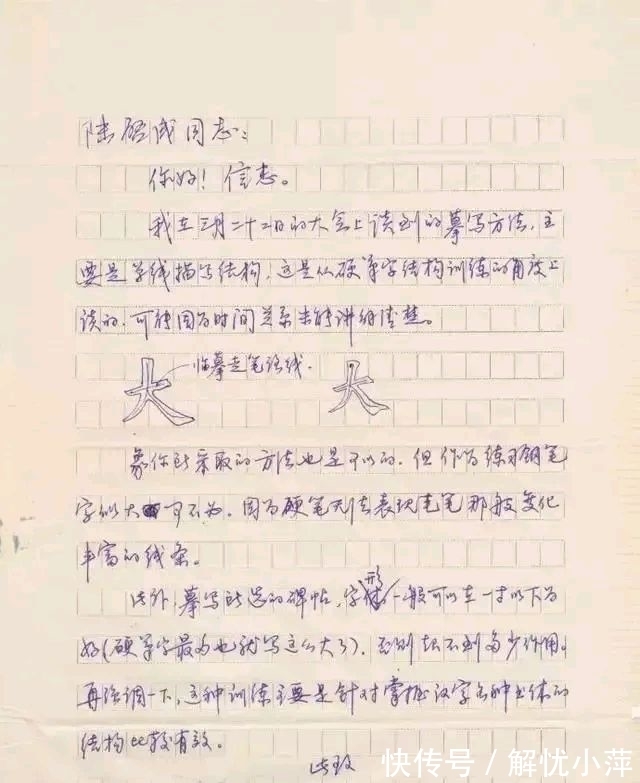 陆启成同志：
你好！信悉。
我在三月二十二日的大会上谈到的摹写方法，主
要是单线描写结构，这是从硬笔字结构训练的角度上
谈的，可能因为时间关系未能讲得清楚。
大 临摹走笔路线. 大
象你所采取的方法也是可以的，但作为练习钢笔
字似大可不必，因为硬笔无法表现毛笔那般变化
丰富的线条。
此外，摹写所选的碑帖，字形一般可以在一寸以下为
好（硬笔字最多也就写这么大了），否则起不到多少作用。
再强调一下，这种训练主要是针对掌握汉字各种书体的
结构比较有效。
此致
快传号 / 解忧小萍